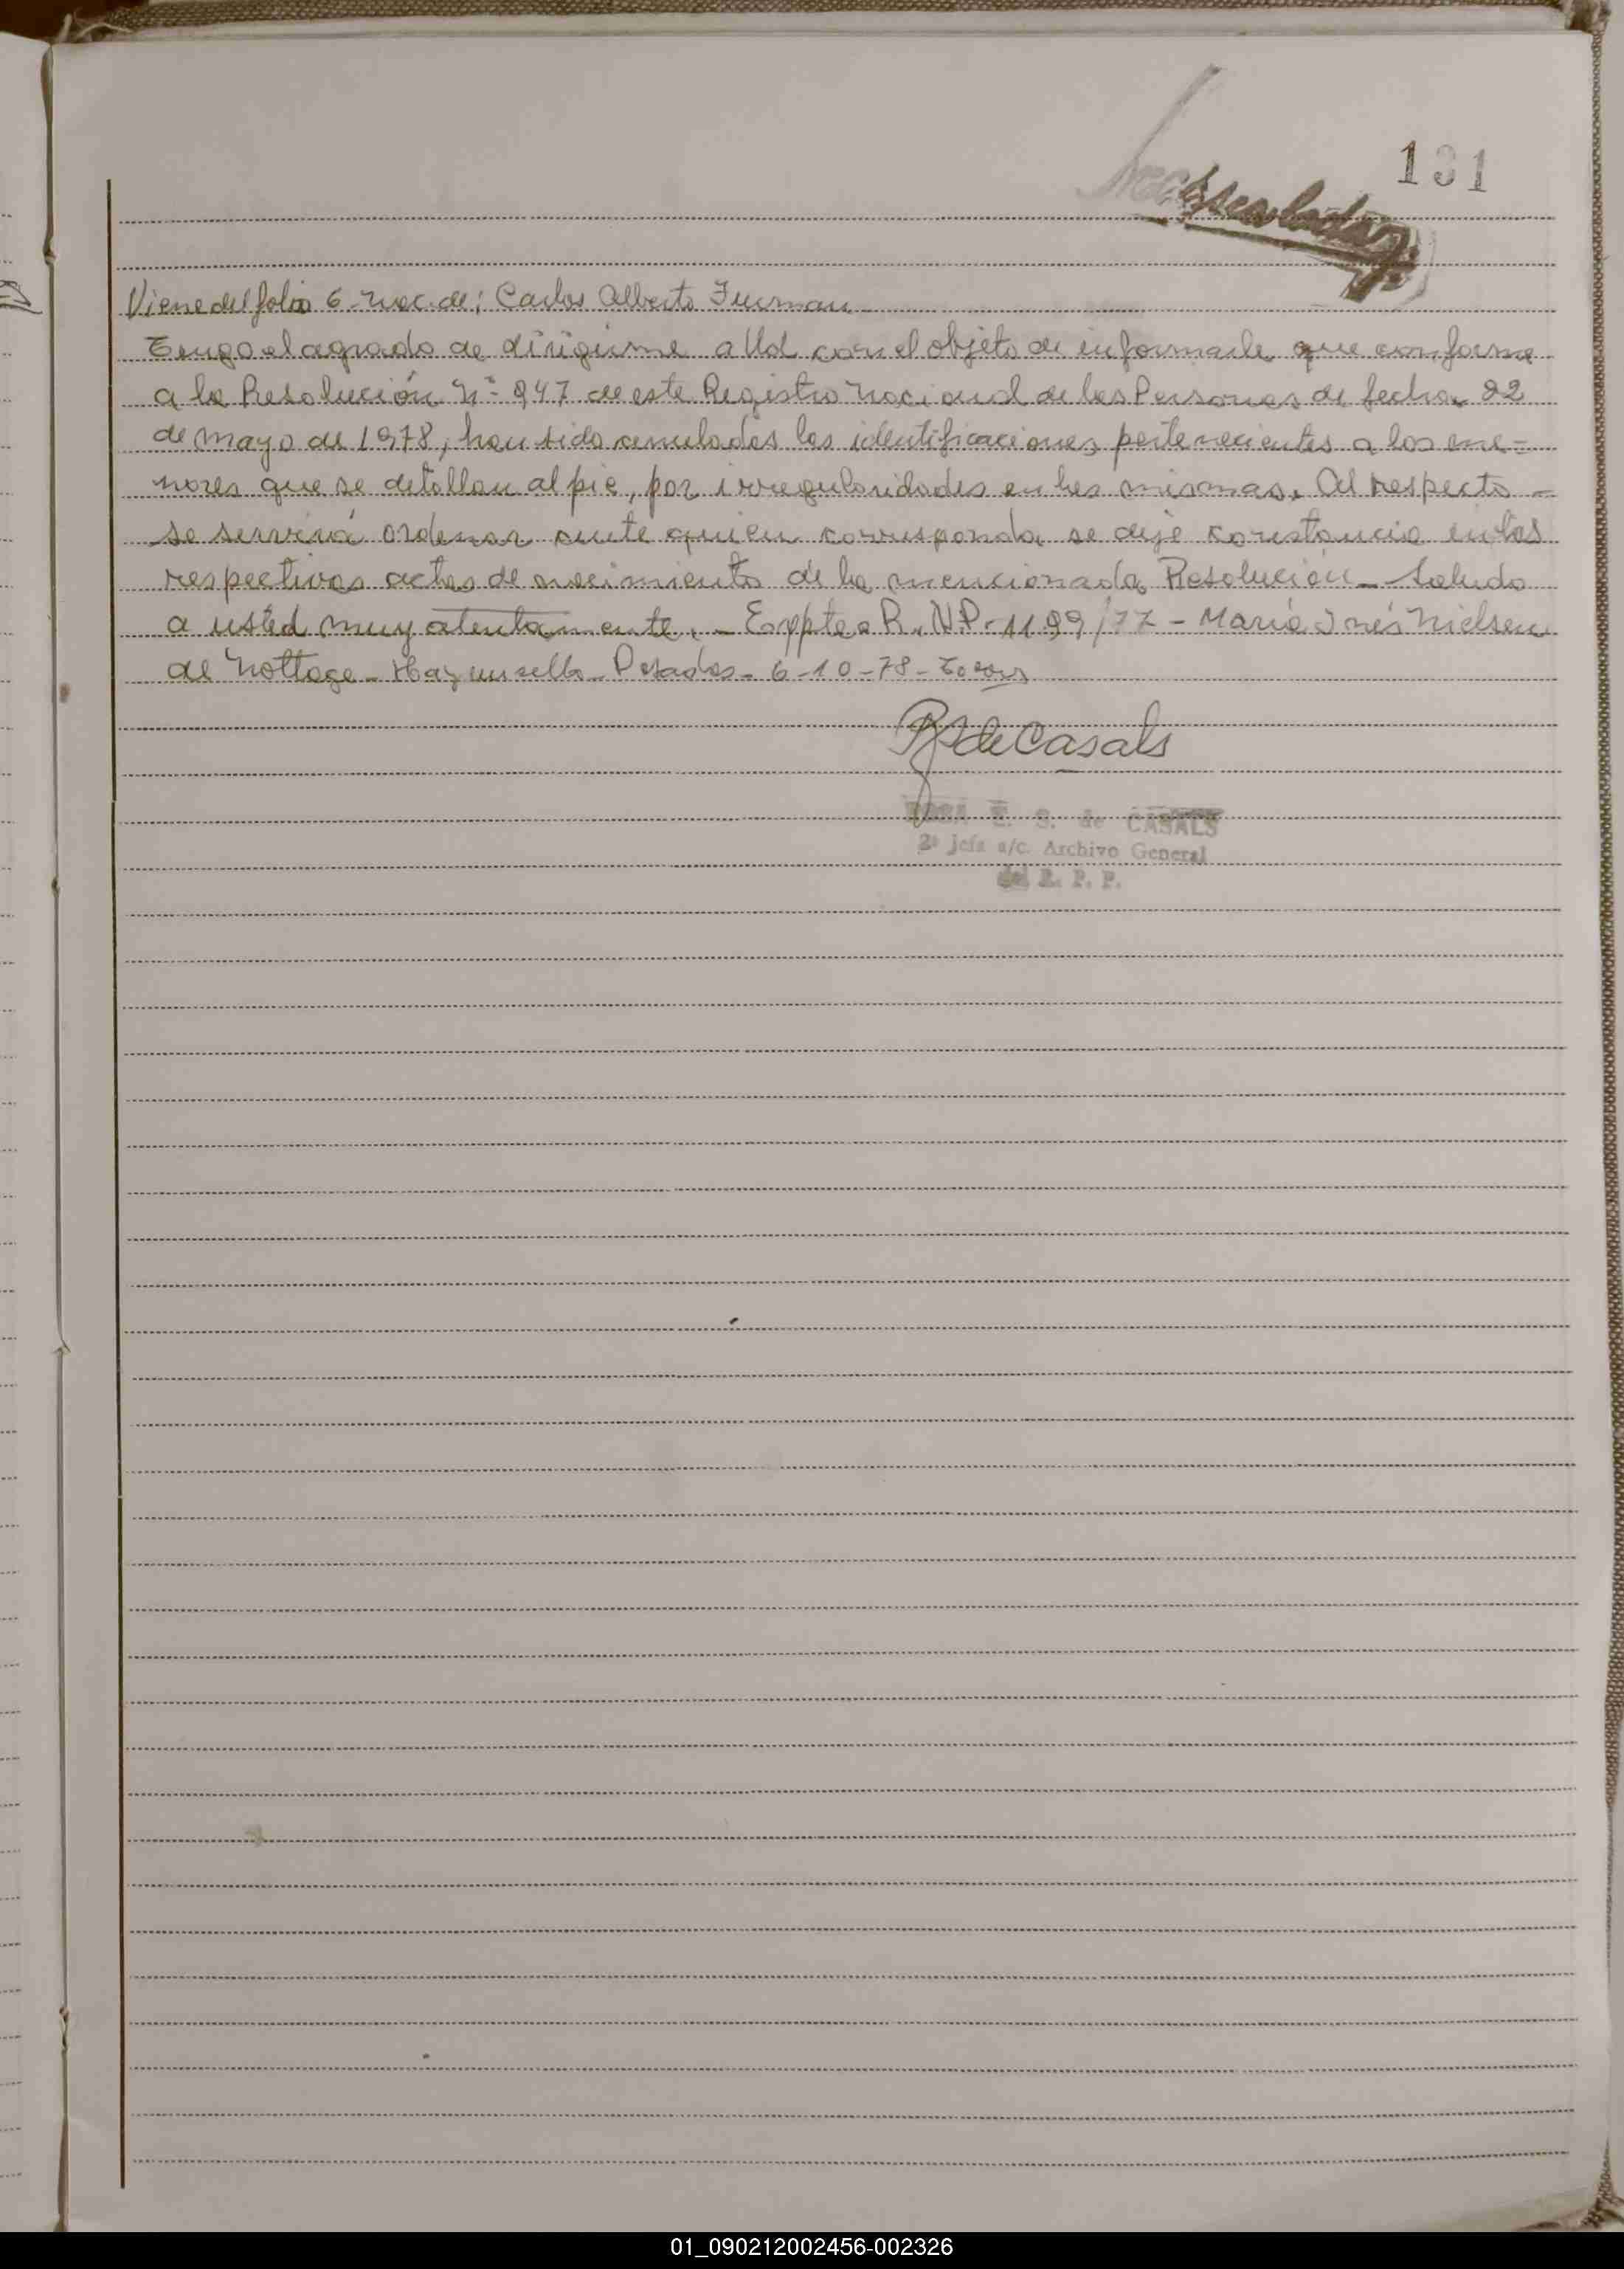 131
Viene del folio 6 - nac. de: Carlos Alberto
Tengo el agrado de dirigirme a Ud con el objeto de informarle que conforme
a la Resolución Nº 947 de este Registro Nacional de las Personas de fecha 22
de mayo de 1978, han sido anuladas las identificaciones pertenecientes a los me=
nores que se detallan al pie, por irregularidades en las mismas. Al respecto -
se servirá ordenar ante quien corresponda se deje constancia en las
respectivas actas de nacimiento de la mencionada Resolución - Saludo
a usted muy atentamente. - Exppte. R.N.P. 1199/77 - María Inés Nielsen
de Nottage - Hay un sello - Posadas - 6-10-78 -
de Casals
ROSA E. S. de CASALS
2ª Jefa a/c. Archivo General
del R. P. P.
01_090212002456-002326